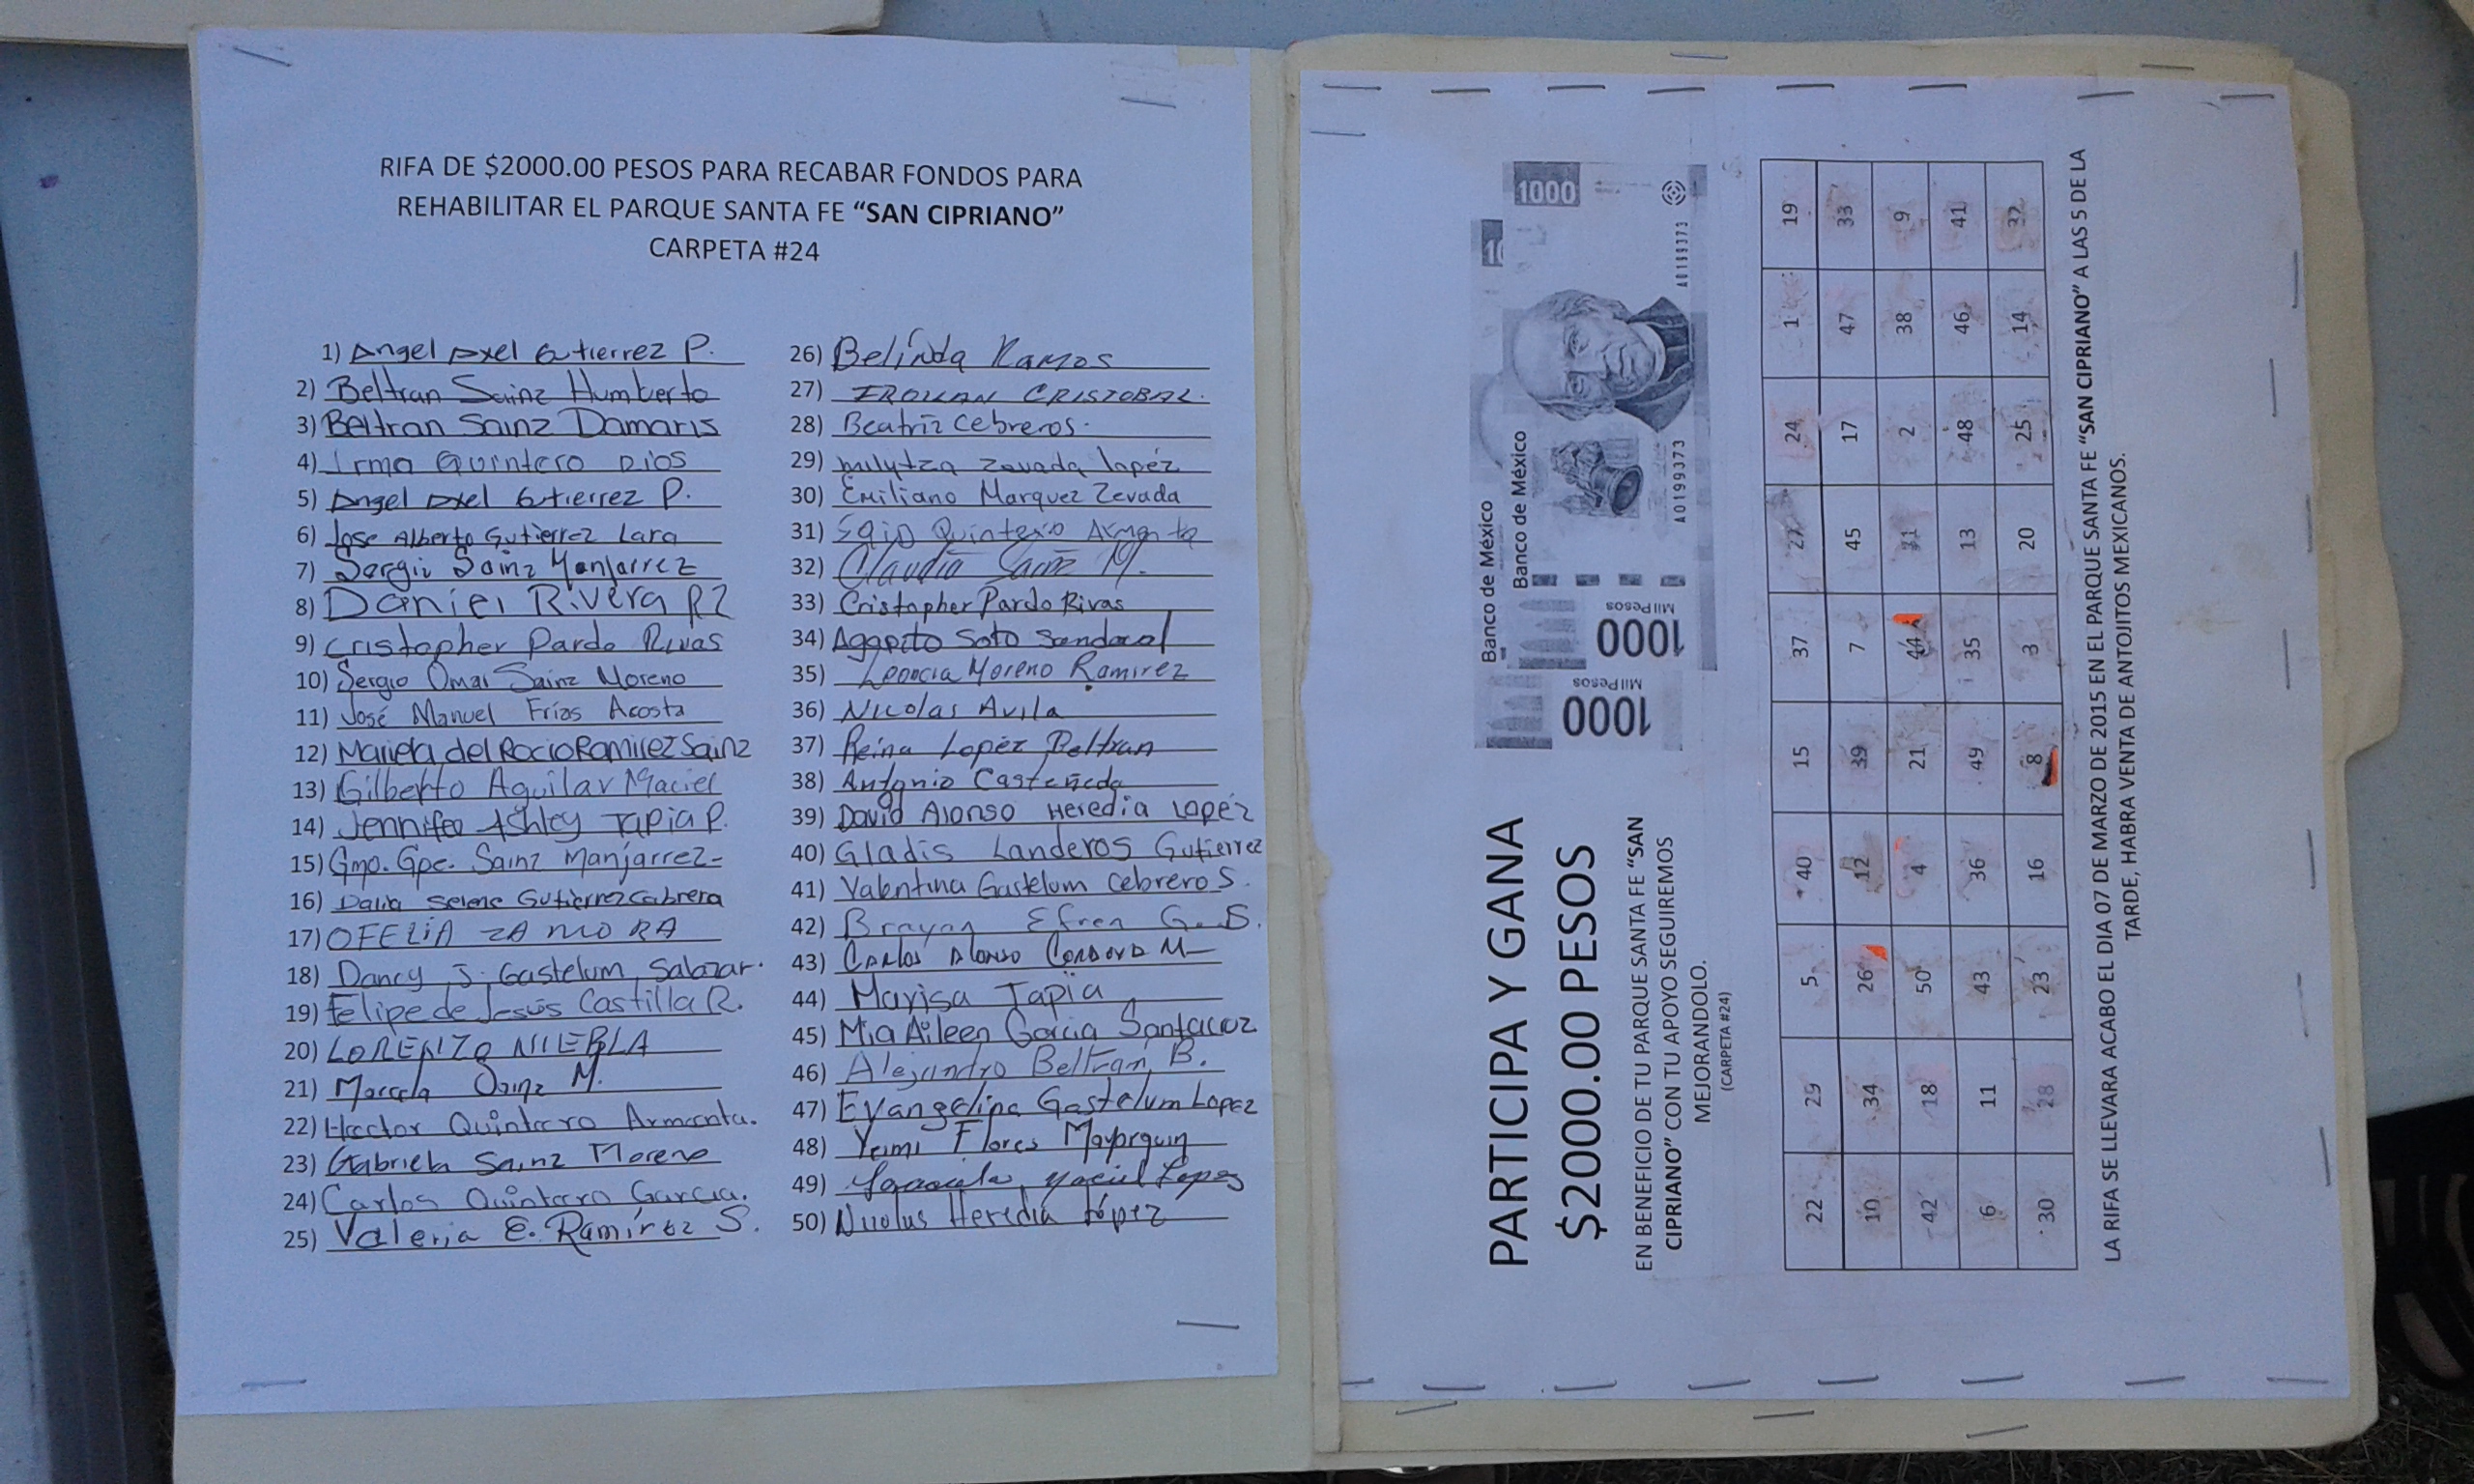 RIFA DE $2000.00 PESOS PARA RECABAR FONDOS PARA
REHABILITAR EL PARQUE SANTA FE “SAN CIPRIANO”
CARPETA #24
1) Angel Axel Gutierrez P.
2) Beltran Sainz Humberto
3) Beltran Sainz Damaris
4) Irma Quintero Rios
5) Angel Axel Gutierrez P.
6) Jose Alberto Gutierrez Lara
7) Sergio Sainz Manjarrez
8) Daniel Rivera RZ
9) Cristopher Pardo Rivas
10) Sergio Omar Sainz Moreno
11) José Manuel Frias Acosta
12) Mariela del Rocio Ramirez Sainz
13) Gilberto Aguilar Maciel
14) Jennifer Ashley Tapia P.
15) Gmo. Gpe. Sainz Manjarrez
16) Dalia Selene Gutierrez Cabrera
17) OFELIA ZAMORA
18) Dancy J. Gastelum Salazar.
19) Felipe de Jesús Castilla R.
20) LORENZO NIEBLA
21) Marcela Sainz M.
22) Hector Quintero Armenta.
23) Gabriela Sainz Moreno
24) Carlos Quintero Garcia.
25) Valeria E. Ramírez S.
26) Belinda Ramos
27) CRISTOBAL.
28) Beatriz Cebreros.
29) Milytza Zevada lopéz
30) Emiliano Marquez Zevada
31) Quintero Armenta
32) Claudia Sainz M.
33) Cristopher Pardo Rivas
34) Agapito Soto Sandoval
35) Leoncia Moreno Ramirez
36) Nicolas Avila
37) Reina Lopéz Beltran
38) Antonio Casteñeda
39) David Alonso Heredia Lopéz
40) Gladis Landeros Gutierrez
41) Valentina Gastelum Cebreros.
42) Brayan Efren G. S.
43) Carlos Alonso Cordova M
44) Marisa Tapia
45) Mia Aileen Garcia Santacruz
46) Alejandro Beltran B.
47) Evangelina Gastelum Lopez
48) Yeimi Flores Mayorquin
49) Maciel Lopez
50) Nicolas Heredia López
Banco de México
Banco de México
1000
10
A0199373
A0199373
1000
Mil Pesos
1000
Mil Pesos
PARTICIPA Y GANA
$2000.00 PESOS
EN BENEFICIO DE TU PARQUE SANTA FE “SAN
CIPRIANO” CON TU APOYO SEGUIREMOS
MEJORANDOLO.
(CARPETA #24)
22 29 5 40 15 37 27 24 1 19
10 34 26 12 39 7 45 17 47 33
42 18 50 4 21 44 31 2 38 9
6 11 43 36 49 35 13 48 46 41
30 28 23 16 8 3 20 25 14 32
LA RIFA SE LLEVARA ACABO EL DIA 07 DE MARZO DE 2015 EN EL PARQUE SANTA FE “SAN CIPRIANO” A LAS 5 DE LA
TARDE, HABRA VENTA DE ANTOJITOS MEXICANOS.